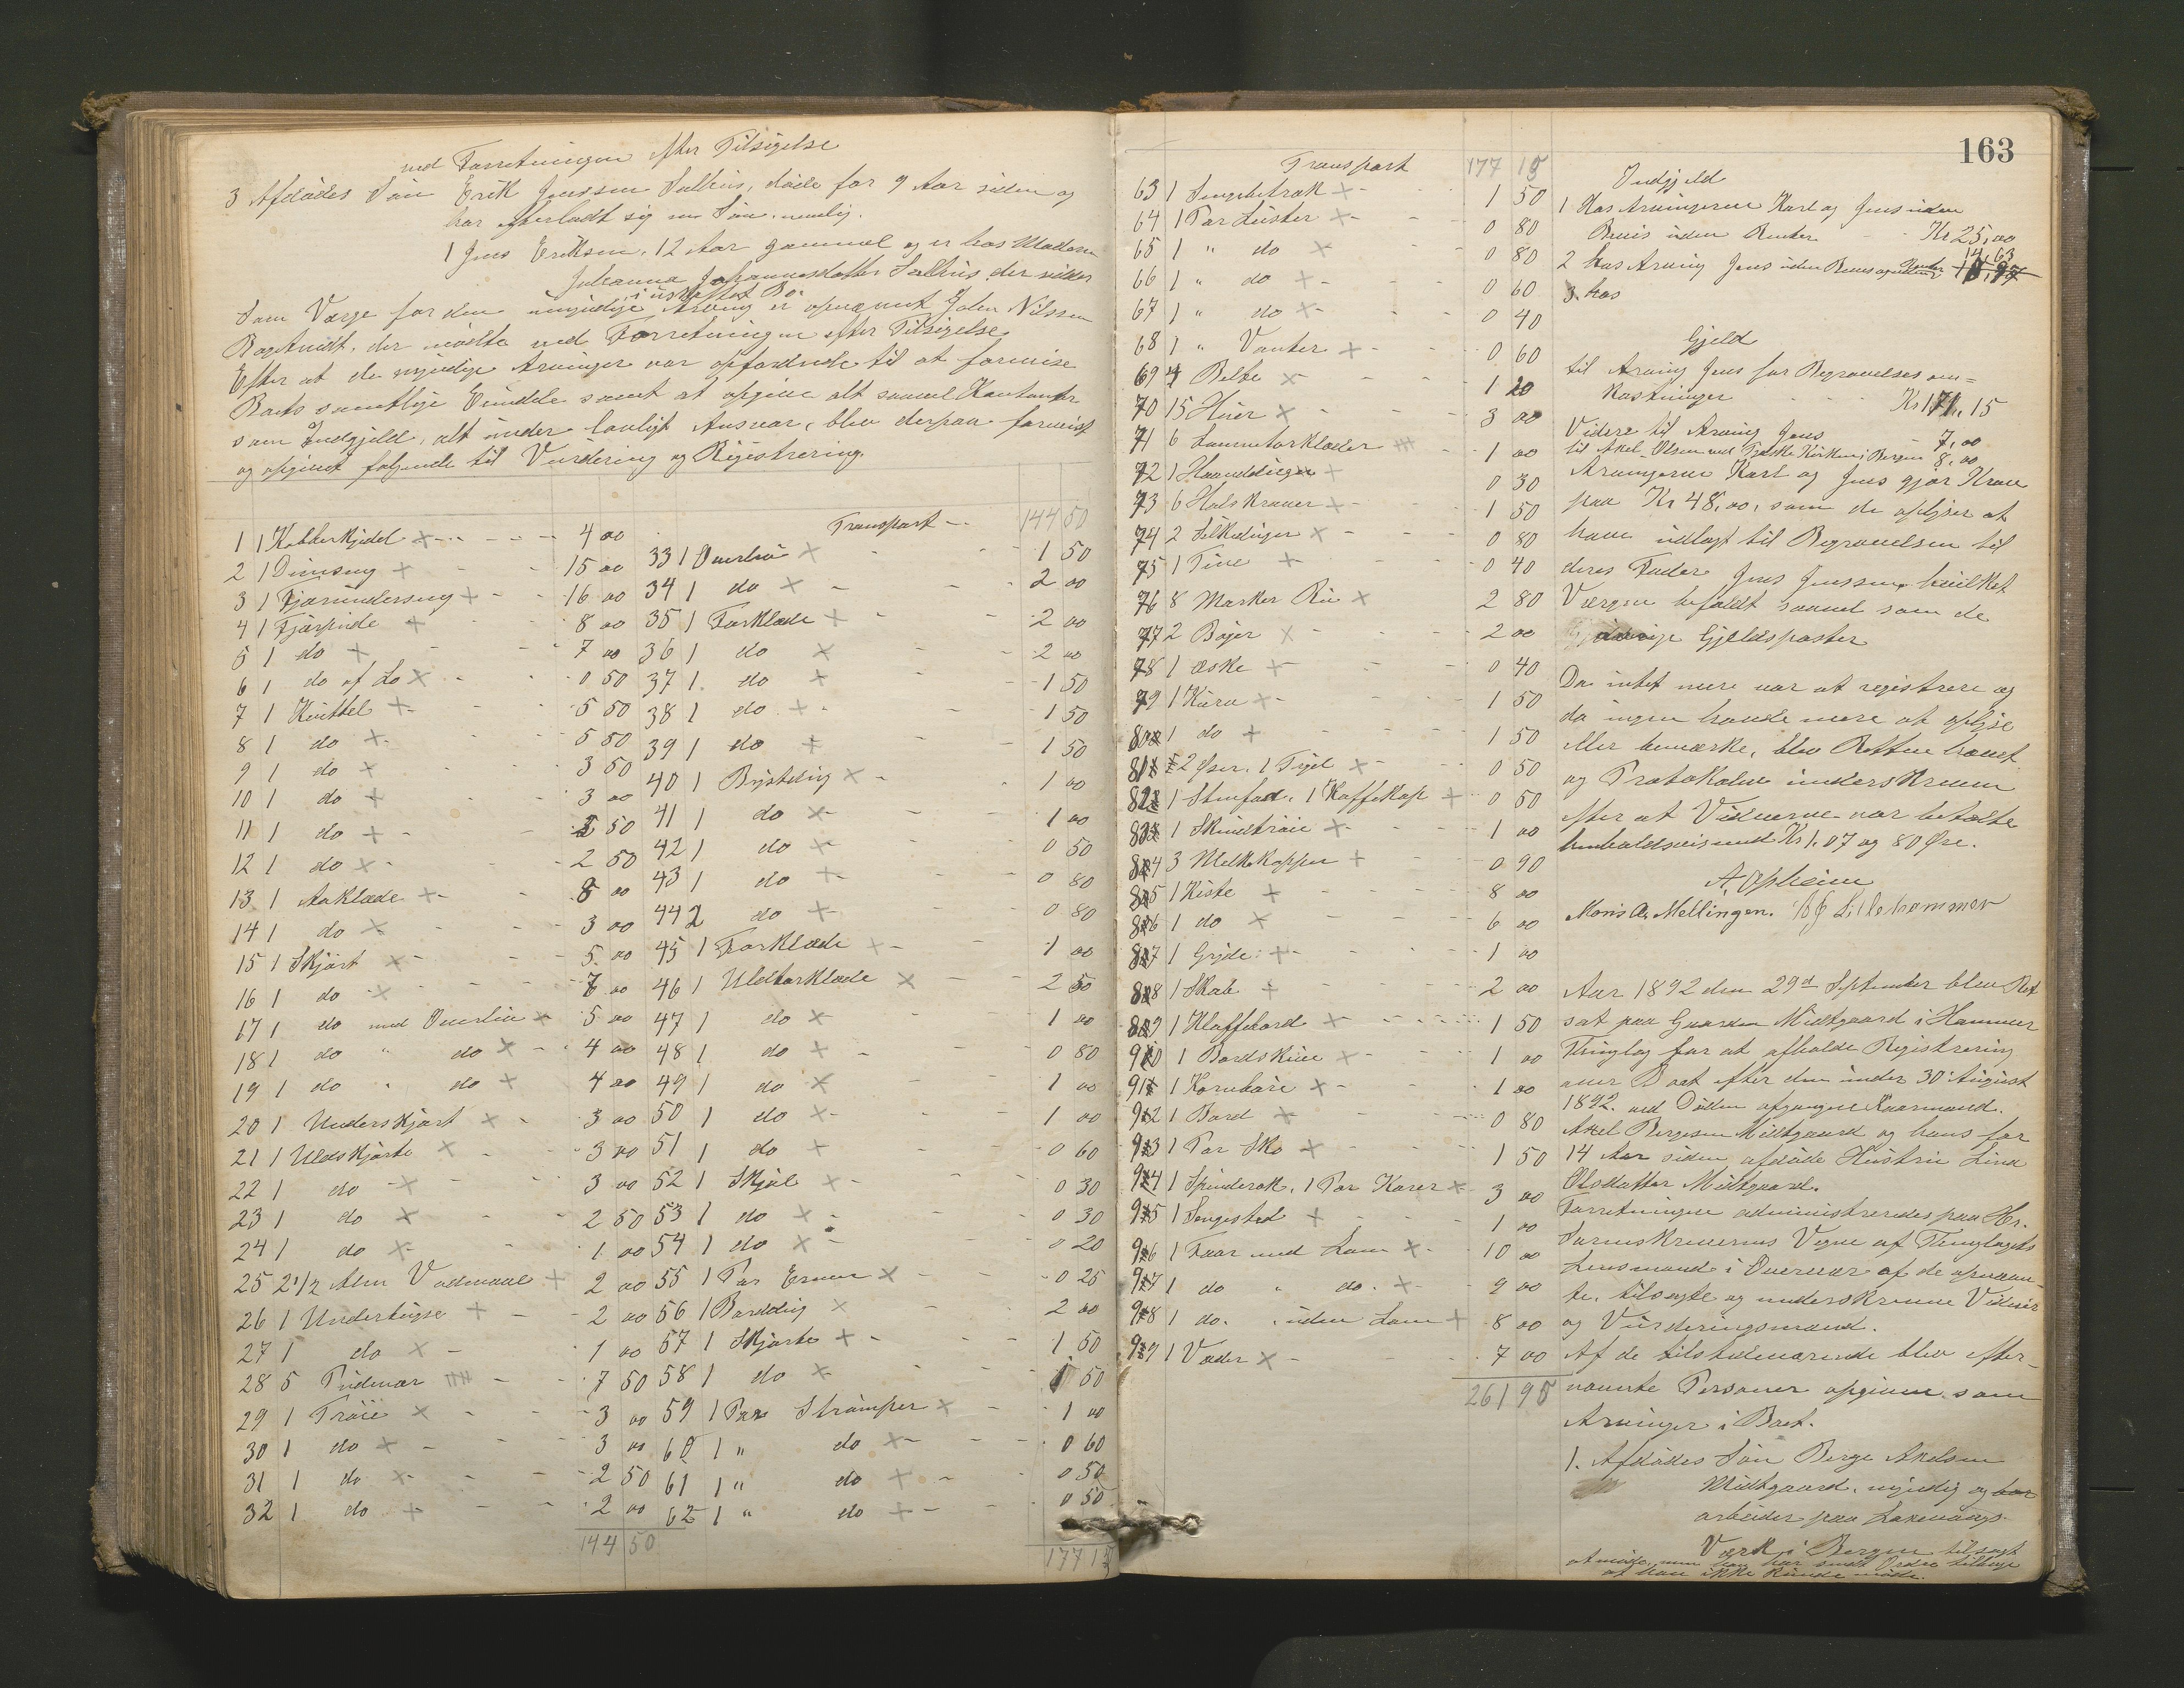 ved Forretningen efter Tilsigelse
3 Afdødes Søn Erik Jenssen Salhus, døde for 9 Aar siden og
har efterladt sig en Søn, nemlig.
1 Jens Eriksen, 12 Aar gammel og er hos Moderen
Johanna Johannesdatter Salhus, der sidder
i uskiftet Bo.
Som Værge for den umyndige Arving er opnævnt John Nilssen
der mødte ved Forretningen efter Tilsigelse
Efter at de myndige Arvinger var opfordrede til at forevise
Boets samtlige Eiendele samt at opgive alt saavel Kontanter
som Indgjeld, alt under lovligt Ansvar, blev derpaa forevist
og opgivet følgende til Vurdering og Registrering.
1 1 Kobberkjedel × 4 00
2 1 Dunseng + 15 00
3 1 Fjærunderseng + 16 00
4 1 Fjærpude + 8 00
5 1 do + 7 00
6 1 do af Lo × 0 50
7 1 Kvittel + 5 50
8 1 do + 5 50
9 1 do × 3 50
10 1 do + 3 00
11 1 do + 5 50
12 1 do × 2 50
13 1 Aaklæde + 8 00
14 1 do × 3 00
15 1 Skjørt × 5 00
16 1 do × 7 00
17 1 do med Overliv × 5 00
18 1 do " do × 4 00
19 1 do " do + 4 00
20 1 Underskjørt × 3 00
21 1 Uldskjørte × 3 00
22 1 do × 3 00
23 1 do × 2 50
24 1 do × 1 00
25 2 1/2 Alen Vadmaal + 2 00
26 1 Undertrøye + 2 00
27 1 do × 1 00
28 5 Pudevar 7 50
29 1 Trøie × 3 00
30 1 do × 3 00
31 1 do × 2 50
32 1 do + 2 00
144 50
Transport 144 50
33 1 Overliv × 1 50
34 1 do × 2 00
35 1 Forklæde + 2 00
36 1 do × 2 00
37 1 do + 1 50
38 1 do + 1 50
39 1 do + 1 50
40 1 Brystdug × 1 00
41 1 do × 1 00
42 1 do + 0 50
43 1 do + 0 80
44 2 do + 0 80
45 1 Forklæde + 1 00
46 1 Uldtørklæde × 2 50
47 1 do × 1 00
48 1 do + 0 80
49 1 do × 1 00
50 1 do × 1 00
51 1 do + 0 60
52 1 Skjøl × 0 30
53 1 do × 0 30
54 1 do × 0 20
55 1 Par Ermer × 0 25
56 1 Borddug × 2 00
57 1 Skjorte + 1 50
58 1 do × 1 50
59 1 Par Strømper × 1 00
60 1 " do × 0 60
61 1 " do + 0 50
62 1 " do + 0 50
177 15
163
Transport 177 15
63 1 Sengebetræk × 1 50
64 1 Par Lester × 0 80
65 1 " do × 0 80
66 1 " do + 0 60
67 1 " do × 0 40
68 1 " Vanter × 0 60
69 4 Belte × 1 20
70 15 Huer × 3 00
71 6 Lommetørklæder 1 00
72 1 Haanddug + 0 30
73 6 Halskraver + 1 50
74 2 Silkeduger × 0 80
75 1 Tine + 0 40
76 8 Marker × 2 80
77 2 Bøger × 2 00
78 1 æske + 0 40
79 1 Kurv + 1 50
80 1 do + 1 50
81 2 Øser, 1 × 0 50
82 1 Stenfad, 1 Kaffekop + 0 50
83 1 Skindtrøie × 1 00
84 3 Melkekopper + 0 90
85 1 Kiste + 8 00
86 1 do × 6 00
87 1 Gryde + 1 00
88 1 Skab + 2 00
89 1 Klaffebord + 1 50
90 1 Bordskive × 1 00
91 1 Kornbøre × 1 00
92 1 Bord × 0 80
93 1 Par Sko × 1 50
94 1 Spinderok, 1 Par Karer × 3 00
95 1 Sengested + 1 00
96 1 Faar med Lam × 10 00
97 1 do " do. + 9 00
98 1 do. uden Lam + 8 00
99 1 Væder × 7 00
261 95
Indgjeld
1 Hos Arvingerne Karl og Jens uden
Bevis uden Renter Kr 25,00
2 hos Arving Jens uden Bevis og uden Renter 14,63
3. hos
Gjeld
til Arving Jens for Begravelsesom=
kostninger Kr 171,15
Videre til Arving Jens 7,00
til Aksel Olsen ved Tydske Kirken i Bergen 8,00
Arvingerne Karl og Jens gjør Krav
paa Kr 48,00, som de oplyser at
have udlagt til Begravelsen til
deres Fader Jens Jenssen, hvilket
Værgen befaldt saavel som de
øvrige Gjeldsposter
Da intet mere var at registrere og
da ingen havde mere at oplyse
eller bemærke, blev Retten hævet
og Protokolen underskreven
efter at Vidnerne var betalte
henholdsvis med Kr 1,07 og 80 Øre.
A. Opheim
Mons A. Mellingen. Lillehammer
Aar 1892 den 29d September blev Ret
sat paa Gaarden Midtgaard i Hammer
Thinglag for at afholde Registrering
over Boet efter den under 30 August
1892 ved Døden afgangne Kaarmand
Aksel Bergesen Midtgaard og hans for
14 Aar siden afdøde Hustru Lina
Olsdatter Midtgaard.
Forretningen administreredes paa Hr.
Sorenskriverens Vegne af Thinglagets
Lensmand i Overvær af de opnævn-
te, tilsagte og underskrevne Vidner
og Vurderingsmænd.
Af de tilstedeværende blev efter-
nævnte Personer opgivne som
Arvinger i Boet.
1. Afdødes Søn Berge Akselsen
Midtgaard, myndig og har
arbeider paa Laxevaags
Værk i Bergen tilsagt
at møde, men han har sendt Ordre tilbage
at han ikke kunde møde.